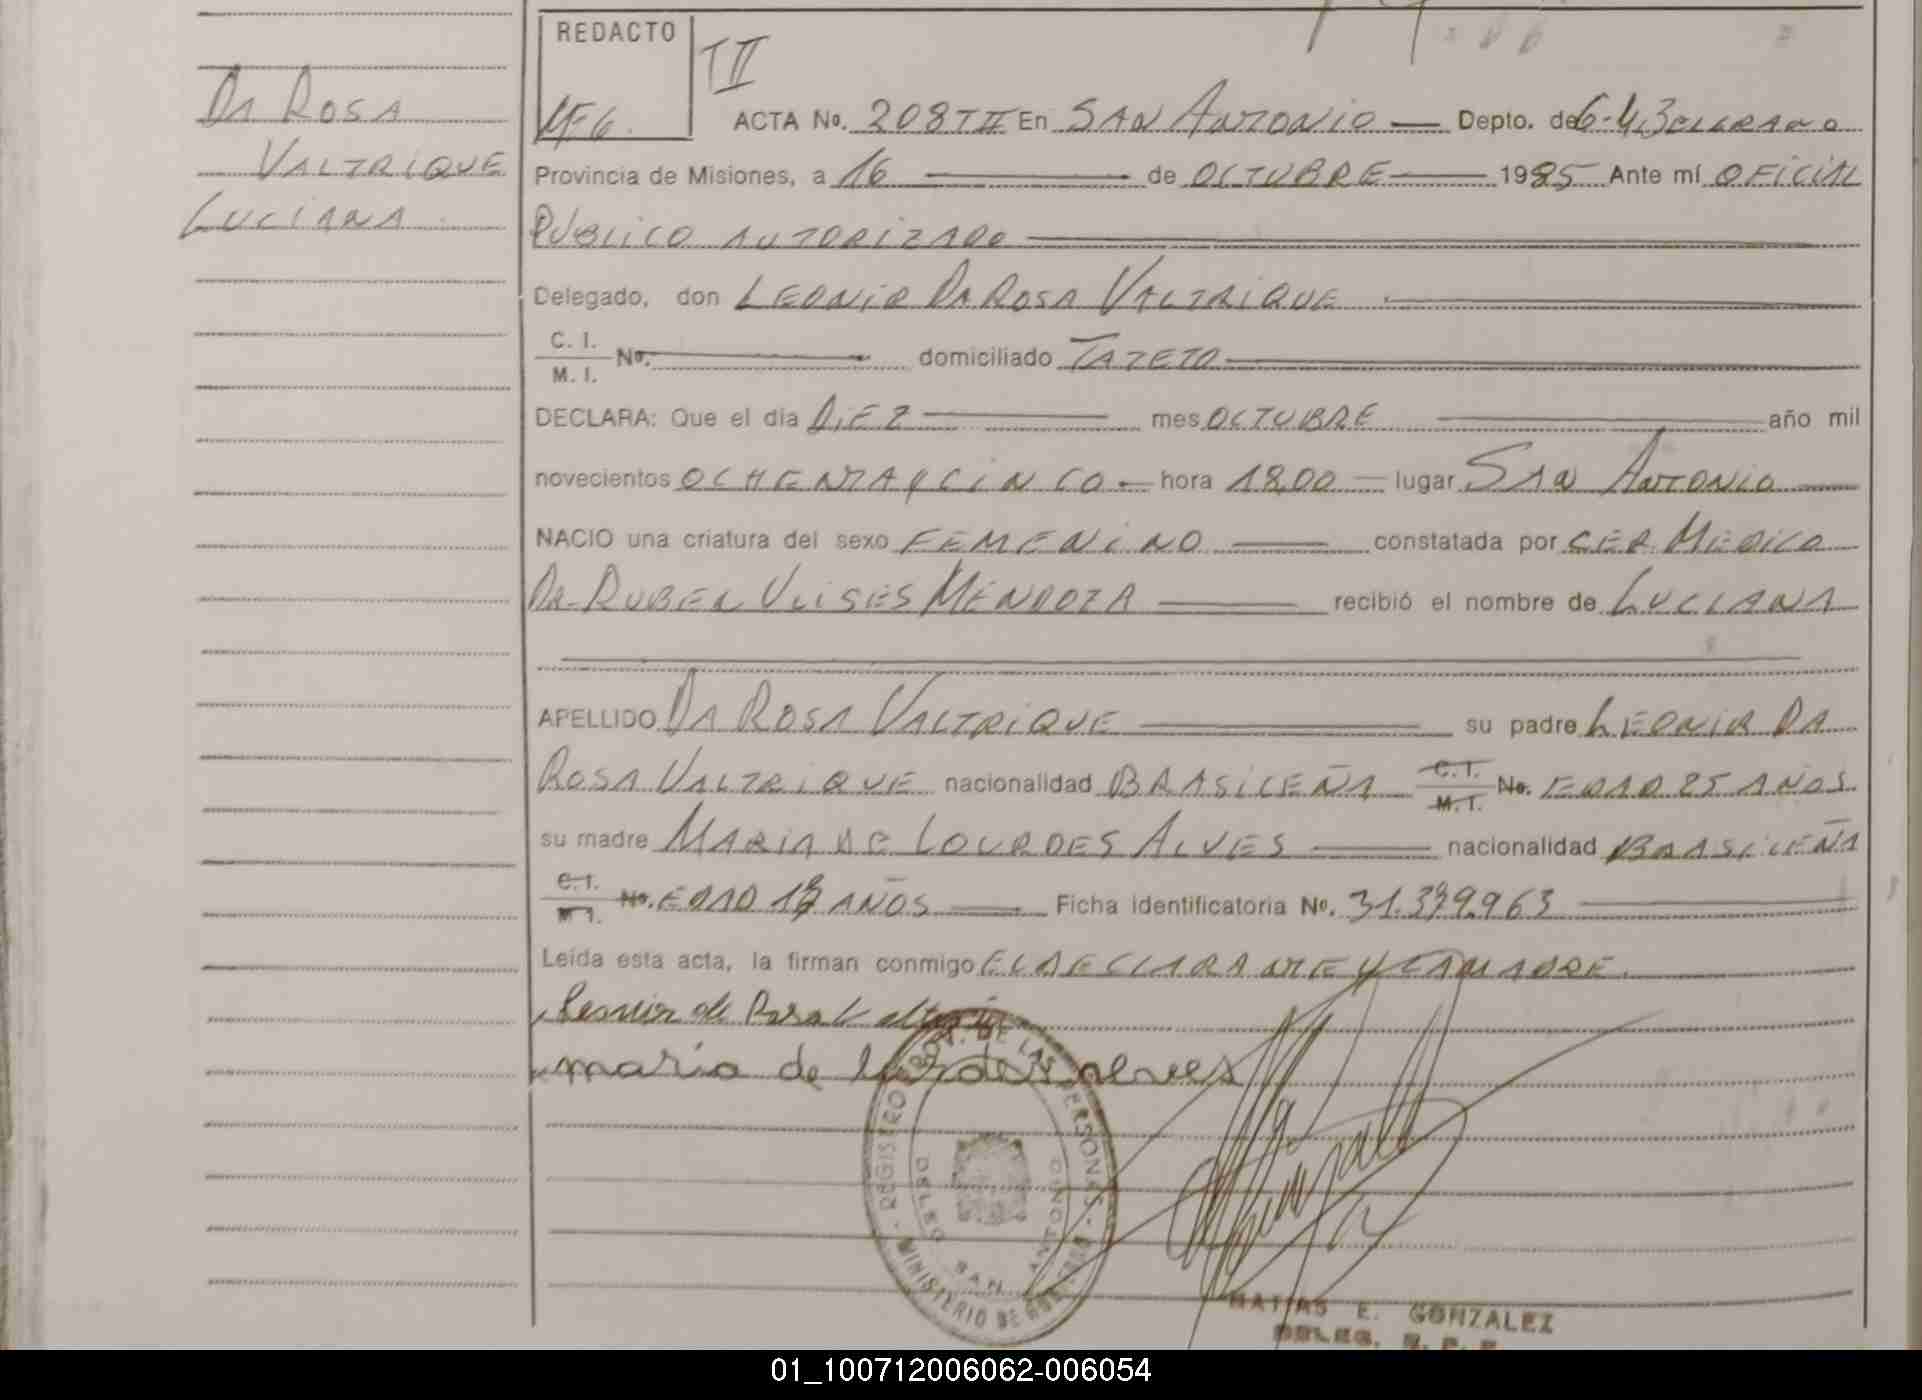 REDACTO
TII
DA ROSA
VALTRIQUE
LUCIANA
ACTA No. 208TII En SAN ANTONIO — Depto. de G.M.BELGRANO
Provincia de Misiones, a 16 — de OCTUBRE — 1985 Ante mí OFICIAL
PUBLICO AUTORIZADO
Delegado, don LEONIR DA ROSA VALTRIQUE
C. I.
M. I.
No. domiciliado TATETO
DECLARA: Que el día DIEZ mes OCTUBRE año mil
novecientos OCHENTA Y CINCO — hora 18,00 — lugar SAN ANTONIO
NACIO una criatura del sexo FEMENINO constatada por CER. MEDICO
DR. RUBEN ULISES MENDOZA recibió el nombre de LUCIANA
APELLIDO DA ROSA VALTRIQUE su padre LEONIR DA
ROSA VALTRIQUE nacionalidad BRASILEÑA C.I. M.I. No. EDAD 25 AÑOS
su madre MARIA DE LOURDES ALVES nacionalidad BRASILEÑA
C.I. M.I. No. EDAD AÑOS Ficha identificatoria No.
Leída esta acta, la firman conmigo EL DECLARANTE Y LA MADRE.
maria de lurdes alves
REGISTRO PROV. DE LAS PERSONAS
DELEG. SAN ANTONIO
MINISTERIO DE GOBIERNO
MATIAS E. GONZALEZ
DELEG. R. P. P.
01_100712006062-006054